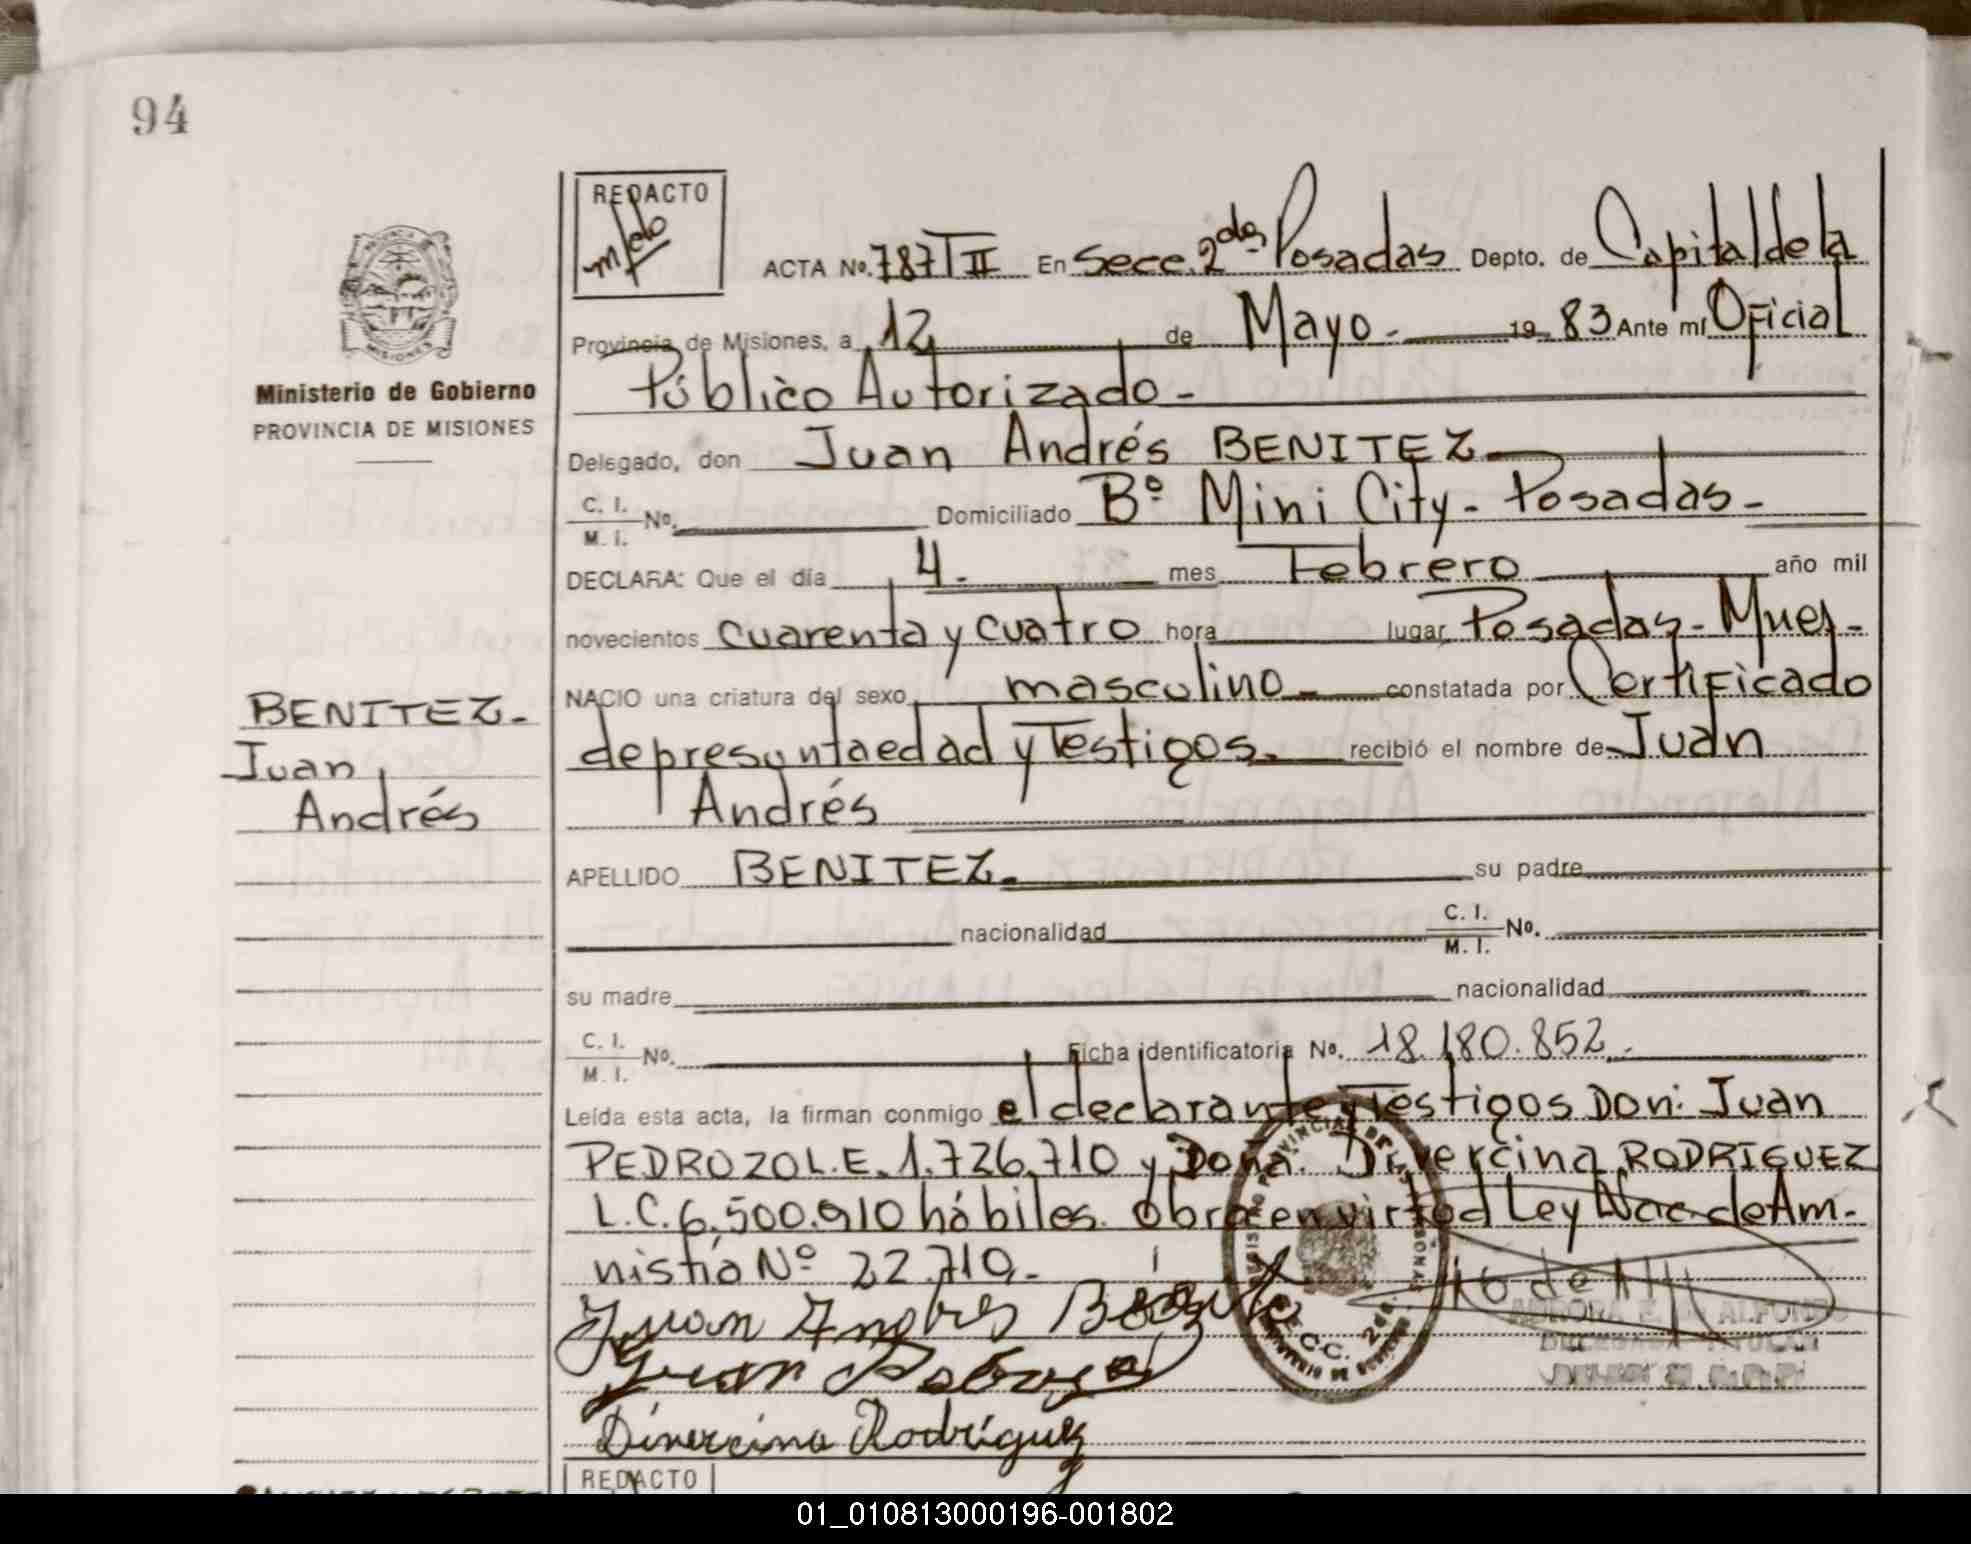 94
REDACTO
ACTA No. 787 T II En Secc. 2da Posadas Depto. de Capital de la
Provincia de Misiones, a 12 de Mayo - 19 83 Ante mí Oficial
Público Autorizado -
Ministerio de Gobierno
PROVINCIA DE MISIONES
Delegado, don Juan Andrés BENITEZ
C. I. M. I. No. Domiciliado Bº Mini City - Posadas -
DECLARA: Que el día 4. mes Febrero año mil
novecientos cuarenta y cuatro hora lugar Posadas - Mnes -
NACIO una criatura del sexo masculino constatada por Certificado
de presunta edad y Testigos. recibió el nombre de Juan
Andrés
BENITEZ -
Juan
Andrés
APELLIDO BENITEZ. su padre
nacionalidad C. I. M. I. No.
su madre nacionalidad
C. I. M. I. No. Ficha identificatoria No. 18.180.852.-
Leída esta acta, la firman conmigo el declarante y Testigos Don: Juan
PEDROZO L.E. 1.726.710 y Doña. Divercina RODRIGUEZ
L.C. 6.500.910 hábiles. Obra en virtud Ley Nac de Am-
nistía Nº 22.710.-
Juan Andres
Juan
Divercina Rodriguez
REDACTO
01_010813000196-001802